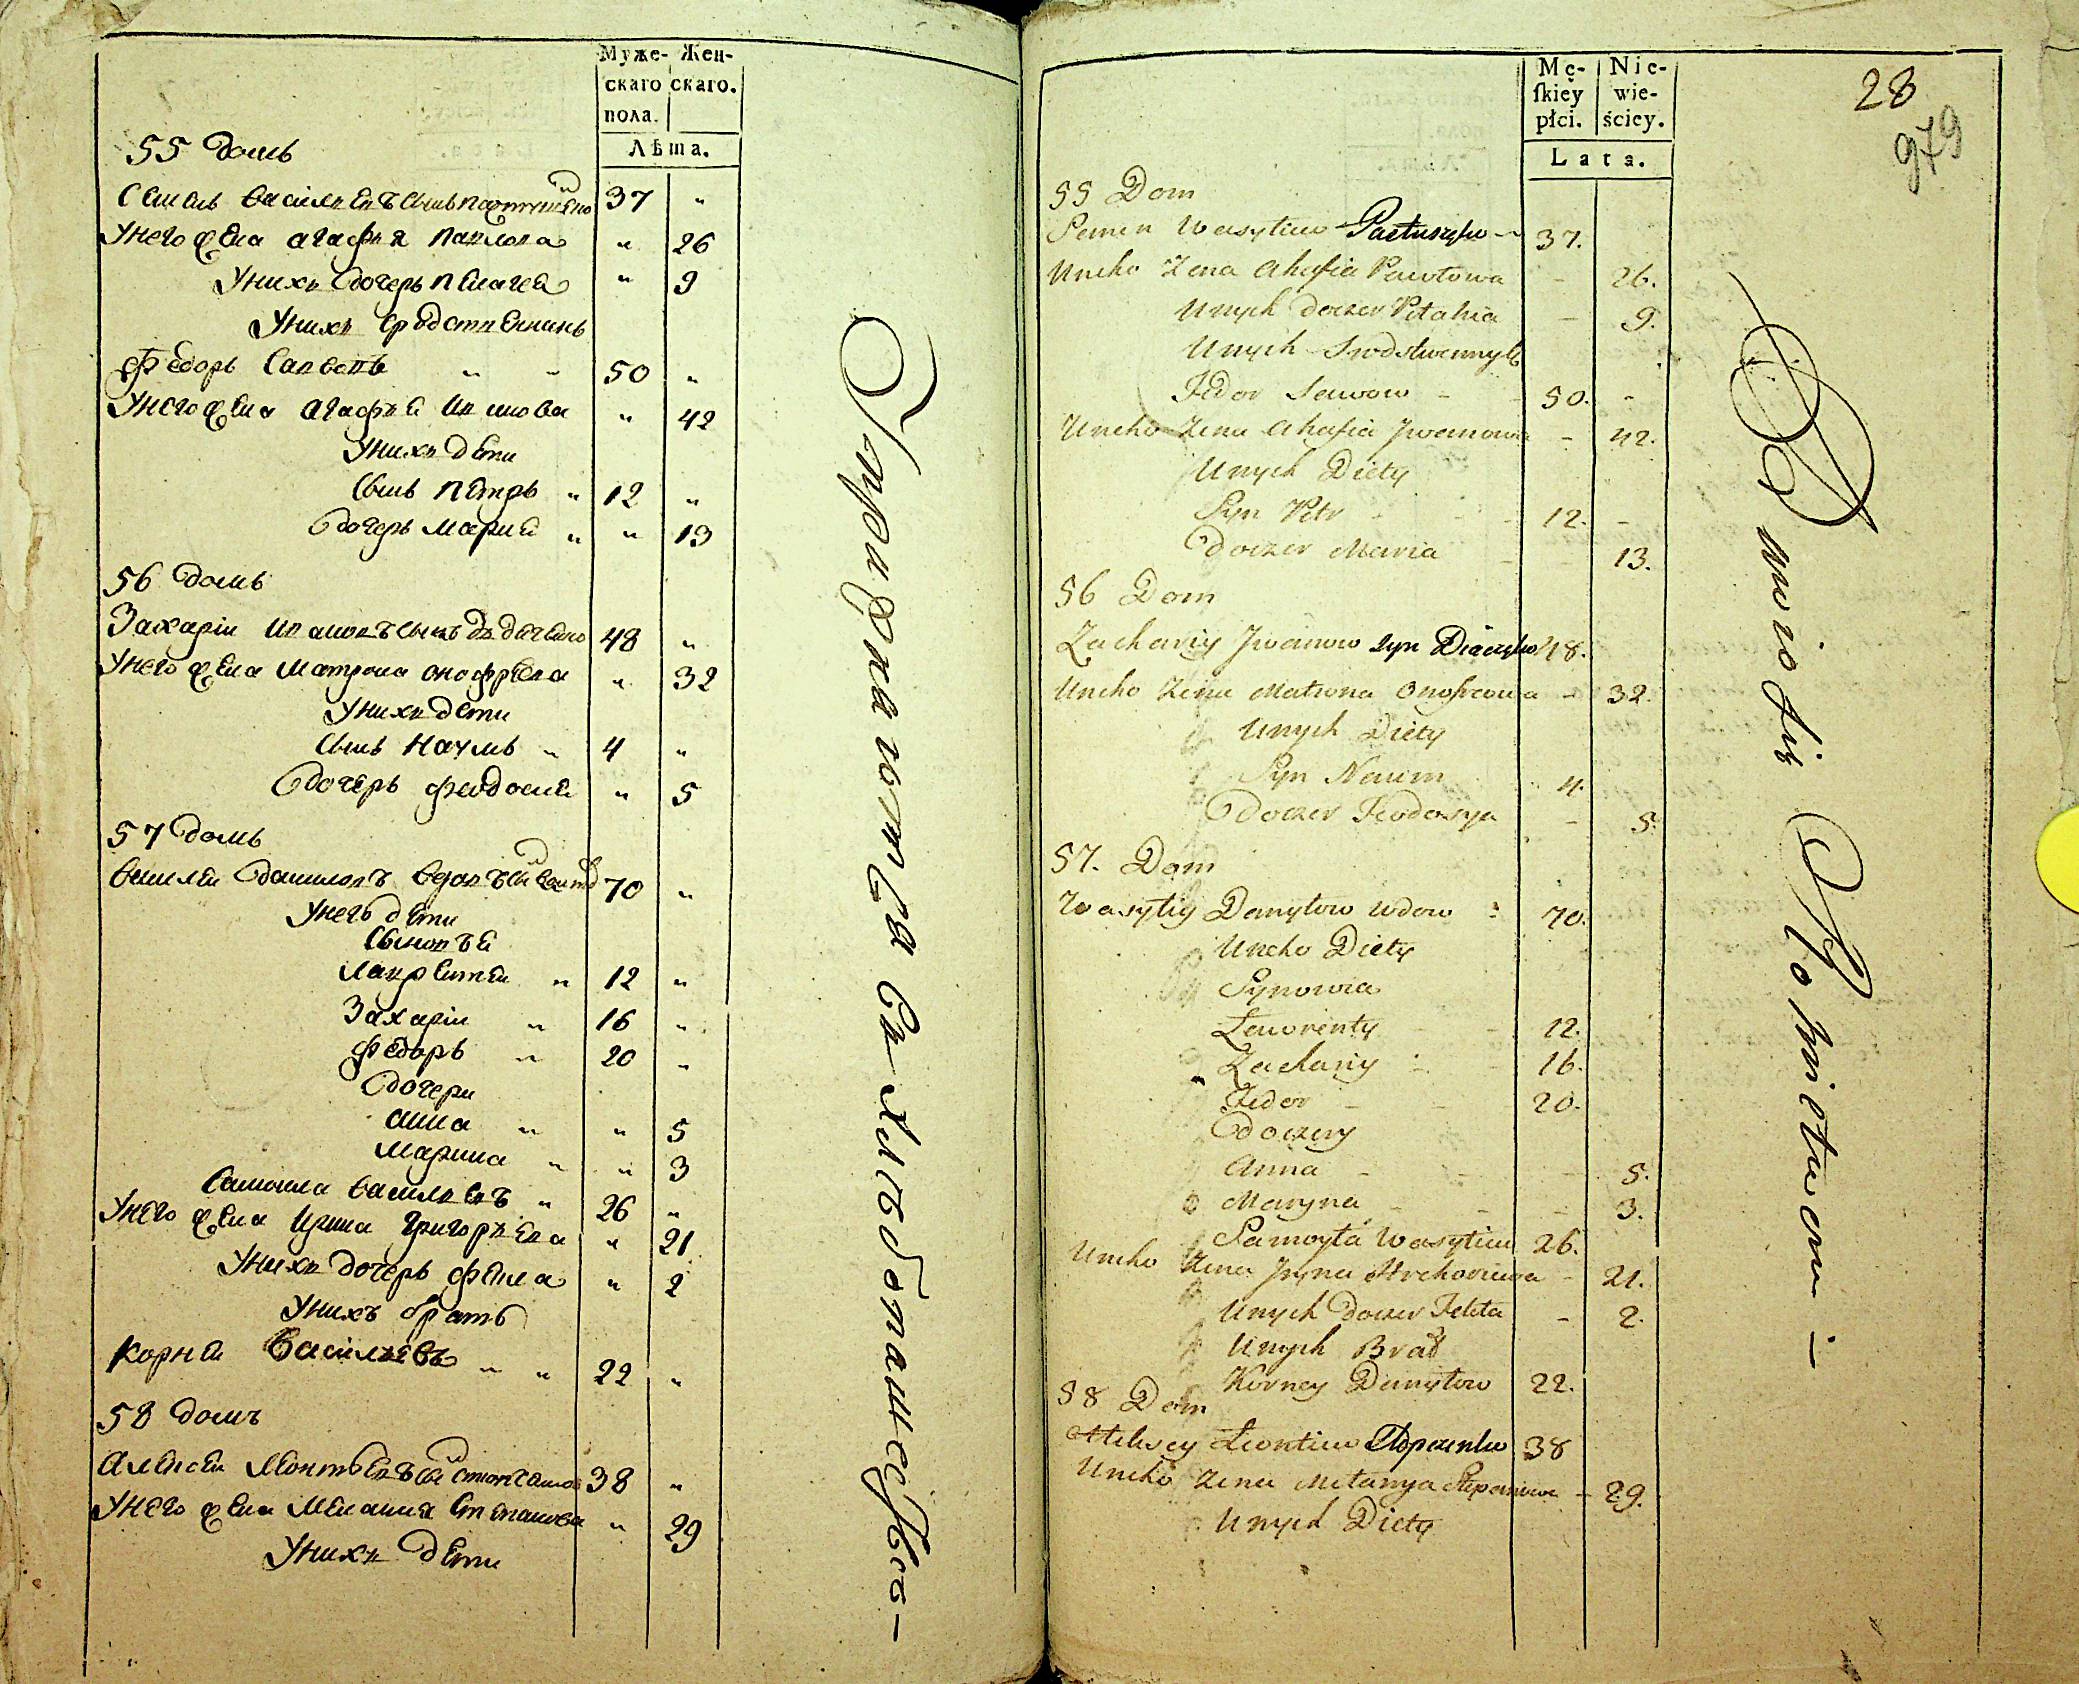 Муже-
скаго
пола.
Жен-
скаго.
Лѣта.
55 домъ
Семенъ Василиевъ сынъ 37 "
У него жена Агафия Павлова " 26
У нихъ дочерь Пелагея " 9
У нихъ сродственникъ
Федоръ Савовъ " " 50 "
У него жена Агафия Иванова " 42
У нихъ дети
Сынъ Петръ " 12 "
Дочерь Мария " " 13
56 домъ
Захарiи Ивановъ сынъ 48 "
У него жена Матрона Онофрева " 32
У нихъ дети
Сынъ Наумъ " 4 "
Дочерь Феодосия " 5
57 домъ
Василей Даниловъ вдовъ 70 "
У него дети
Сыновъя
Лаврентей " 12 "
Захарiи " 16 "
Федоръ " 20 "
Дочери
Анна " " 5
Марина " " 3
Самоила Василиевъ " 26 "
У него жена Ирина Григориева " 21
У нихъ дочерь Фекла " 2
У нихъ братъ
Корней Василиевъ " " 22 "
58 домъ
Алексей Леонтьевъ 38 "
У него жена Мелания Степанова " 29
У нихъ дети
Mę-
ſkiey
płci.
Nie-
wie-
ściey.
Lata.
28
979
55 Dom
Semen Wasyliew 37.
Uneho Zena Ahafia Pawłowa - 26.
Unych doczer Pełahia - 9.
Unych Srodstwennyk
Fedor Sawow - 50. -
Uneho Zena Ahafia Jwanowa - 42.
Unych Diety
Syn Petr - 12. -
Doczer Maria 13.
56 Dom
Zachariy Jwanow syn 48.
Uneho Zena Matrona Onofreowa - 32.
Unych Diety
Syn Naum 4.
Doczer Feodosya - 5.
57. Dom
Wasyliy Danyłow wdow 70.
Uneho Diety
Synowia
Ławrenty 12.
Zachariy 16.
Fedor - 20.
Doczery
Anna - 5.
Maryna - 3.
Samoyła Wasyliew 26.
Uneho Zena Jryna Hrehoriewa - 21.
Unych doczer Fekła - 2.
Unych Brat
Korney Danyłow 22.
58 Dom
Alekscy Leontiew 38
Uneho Zena Mełanya Stepanowa - 29.
Unych Diety